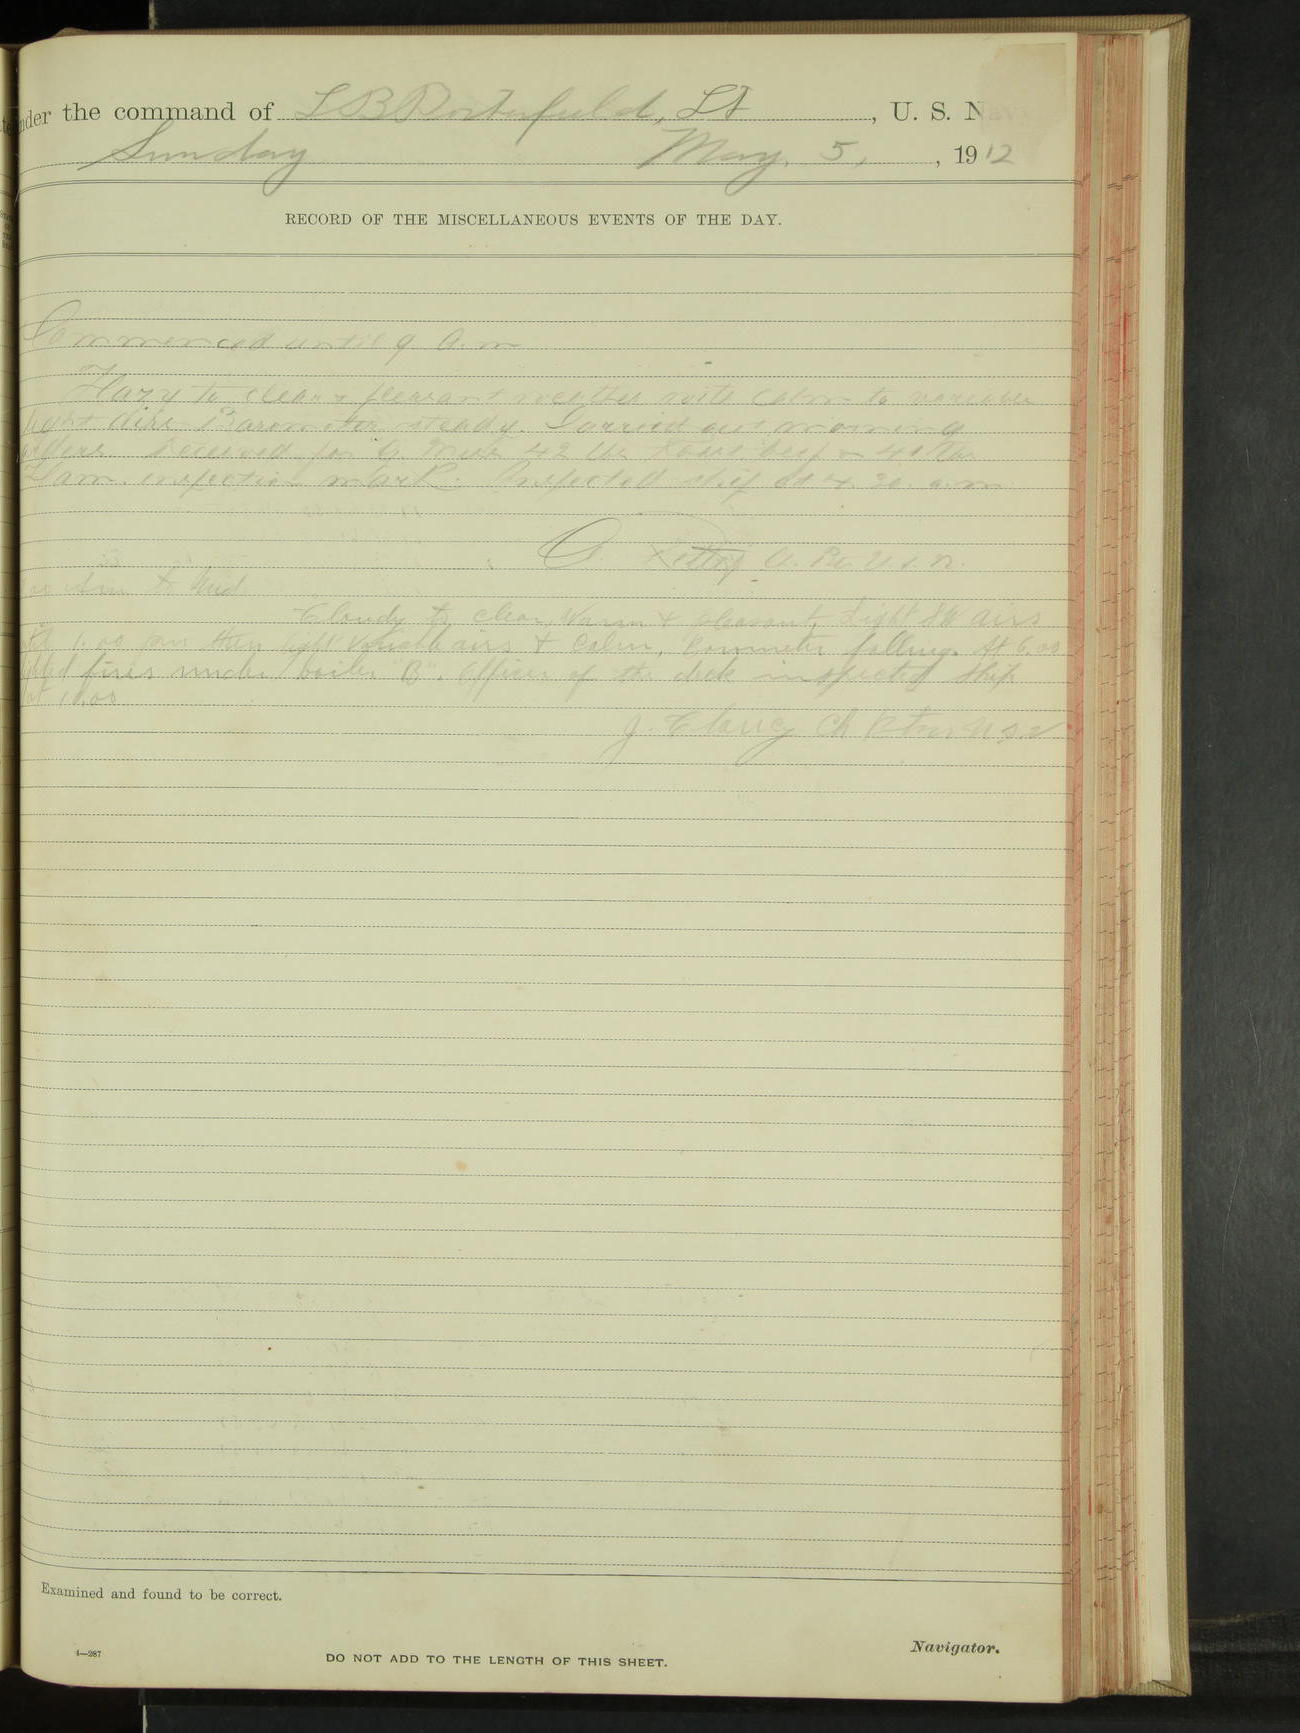 under the command of L B Porterfield, Lt , U. S. N
Sunday May, 5, , 1912
RECORD OF THE MISCELLANEOUS EVENTS OF THE DAY.
Commenced until 9 a.m
Hazy to clear & pleasant weather with calm to variable
light airs Barometer steady. Carried out morning
orders. Received for G. Mess 42 lbs beef & 40 lbs
Ham. inspection mark. Inspected ship at 4.30. a.m
U.S.N.
Am to Mid
Cloudy to clear, Warm & pleasant, Light SW airs
until 1.00 pm then light variable airs & Calm, Barometer falling. At 6.00
lighted fires under boiler "B". Officer of the deck inspected Ship
at 10.00
J. Clancy Ch Btsn U S N
Examined and found to be correct.
4—287
DO NOT ADD TO THE LENGTH OF THIS SHEET.
Navigator.